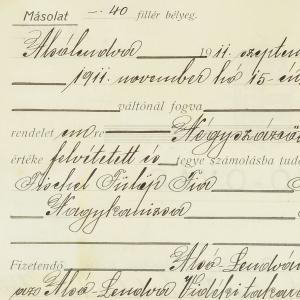 Másolat -.40 fillér bélyeg.
Alsólendva 1911. szeptem
1911. november hó 15-én
váltónál fogva
rendelet em re Négyszázöt
értéke felvétetett és tegye számolásba tud
Fischel Fülöp Fiai
Nagykanizsa
Fizetendő Alsó-Lendván
az Alsó-Lendva Vidéki takar